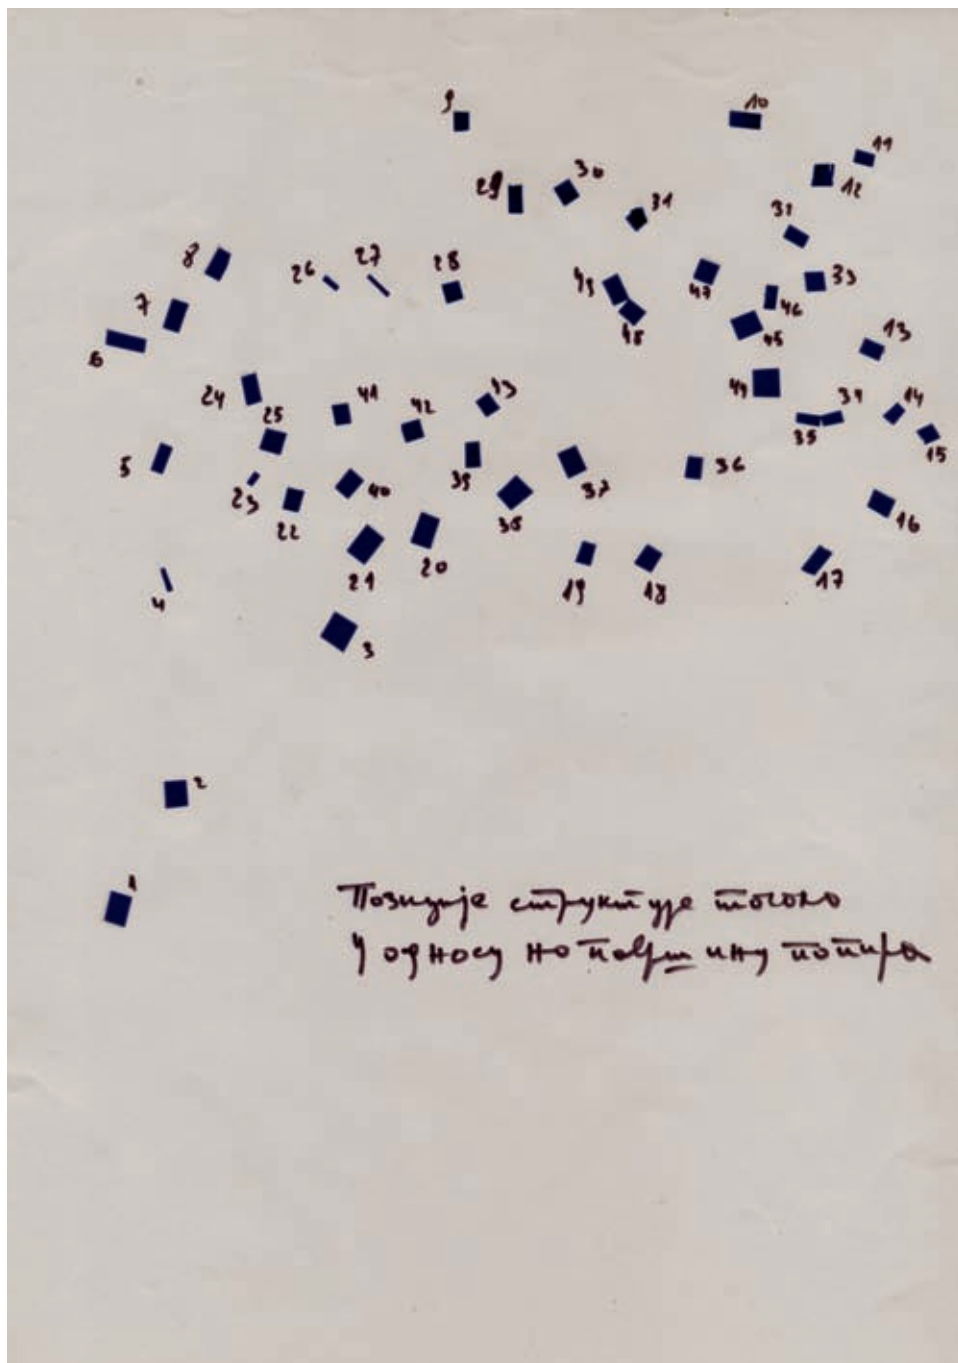 9
10
11
12
29
30
31
32
8
26
27
28
49
47
33
7
46
48
45
13
6
24
41
43
44
25
42
35
34
14
15
5
39
37
36
23
40
22
38
16
21
20
19
18
17
4
3
2
1
Позиције структуре тачака
У односу на површину папира